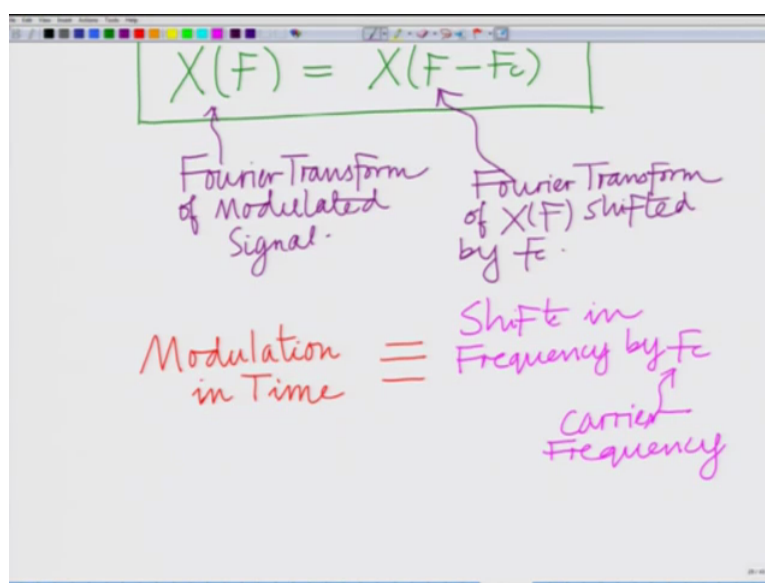 File Edit View Insert Actions Tools Help
X(F) = X(F-Fc)
Fourier Transform
of Modulated
Signal.
Fourier Transform
of X(F) Shifted
by Fc.
Modulation
in Time
≡
Shift in
Frequency by Fc
Carrier
Frequency